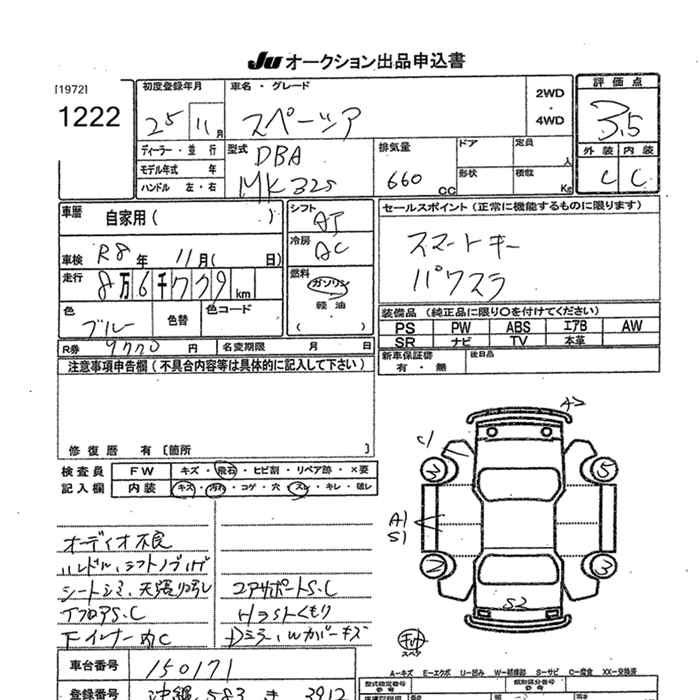 JU オークション出品申込書
[1972]
1222
初度登録年月
25 11月
車名・グレード
スペーシア
2WD
・
4WD
評価点
3.5
外装 内装
C C
ディーラー・並行
モデル年式 年
ハンドル 左・右
型式
DBA
MK32S
排気量
660 CC
ドア
定員 人
形状
積載 Kg
車歴 自家用( )
車検 R8年 11月( 日)
走行 8万6千779km
色 ブルー
色替
色コード
シフト AT
冷房 AC
燃料
ガソリン
軽油
( )
セールスポイント(正常に機能するものに限ります)
スマートキー
パワスラ
装備品(純正品に限り〇を付けてください)
PS PW ABS エアB AW
SR ナビ TV 本革
新車保証書
有・無
後日品
R券 9770円
名変期限 月 日
注意事項申告欄(不具合内容等は具体的に記入して下さい)
修復歴 有〔箇所 〕
検査員
記入欄
FW キズ・飛石・ヒビ割・リペア跡・×要
内装 キズ・汚れ・コゲ・穴・スレ・キレ・破レ
オーディオ不良
シートシミ、天張リ汚レ
TフロアS.C
コアサポートS.C
HライトくもリA2
C1
3
5
A1
S1
2
3
S2
スペタ
車台番号 150171
登録番号 沖縄 583 き 3912
A-キズ E-エクボ U-凹み W-補修跡 S-サビ C-腐食 XX-交換済
型式指定番号
類別区分番号